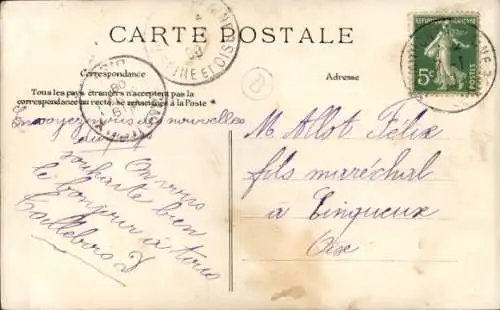 CARTE POSTALE
Correspondance
Adresse
Tous les pays étrangers n'acceptent pas la
correspondance au recto, se renseigner à la Poste
REPUBLIQUE FRANÇAISE
5c
POSTES
SEINE ET OISE
B
Envoyez nous des nouvelles
On vous
souhaite bien
le bonjour à tous
Taillebois
M. Allot Félix
fils maréchal
à Tinqueux
Oise